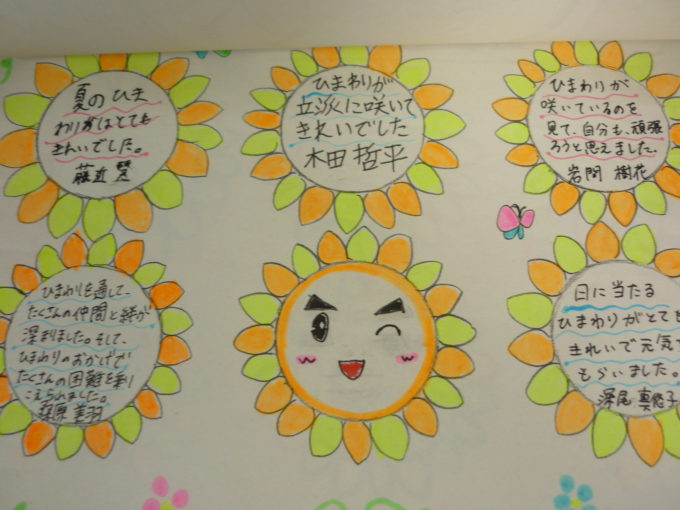 夏のひま
わりがはとても
きれいでした。
ひまわりが
立派に咲いて
きれいでした
木田 哲平
ひまわりが
咲いているのを
見て、自分も、頑張
ろうと思えました。
岩間 樹花
ひまわりを通して、
たくさんの仲間と絆が
深まりました。そして、
ひまわりのおかげで
たくさんの困難を乗り
こえられました。
美羽
日に当たる
ひまわりがとても
きれいで元気
もらいました。
深尾 真悠子